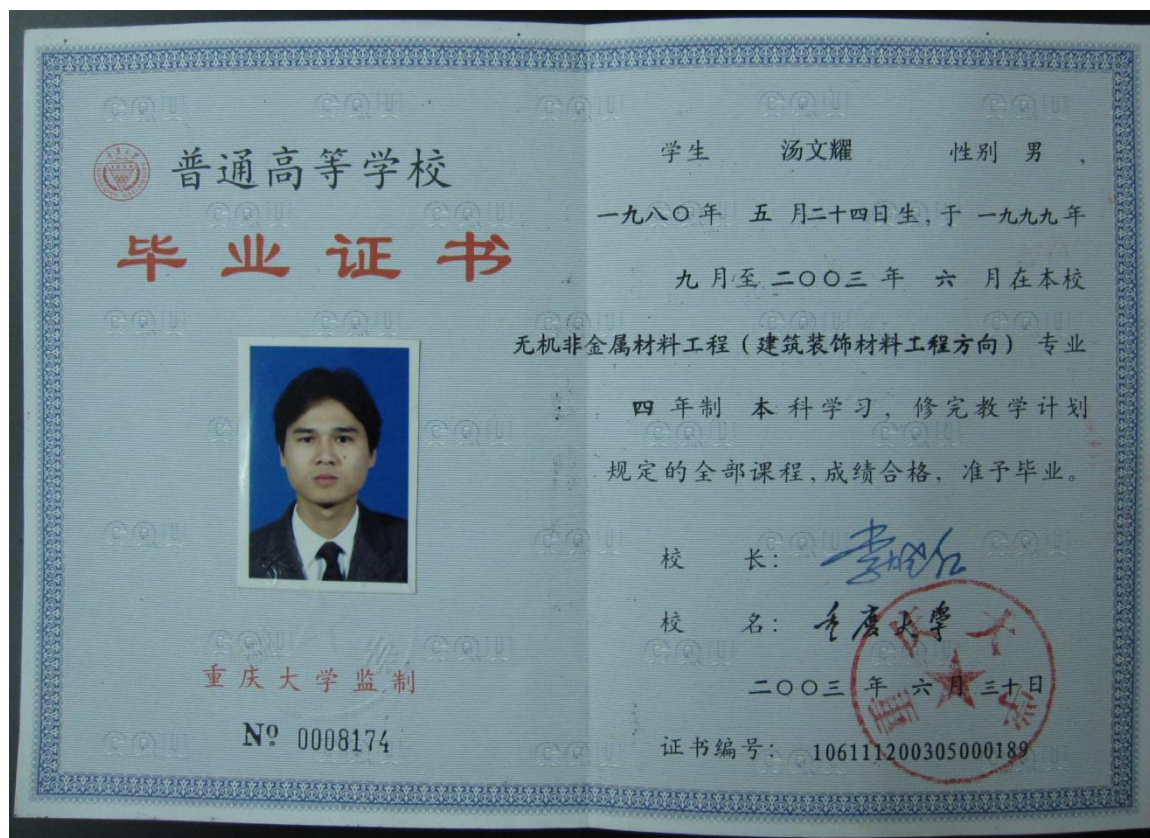 普通高等学校
毕业证书
重庆大学监制
Nº 0008174
学生 汤文耀 性别 男 ,
一九八〇年 五 月二十四日生,于 一九九九年
九 月至 二〇〇三 年 六 月在本校
无机非金属材料工程(建筑装饰材料工程方向) 专业
四 年制 本 科学习, 修完教学计划
规定的全部课程,成绩合格, 准予毕业。
校 长:
校 名: 重庆大学
二〇〇三 年 六 月 三十日
证书编号: 106111200305000189
重庆大学
CQU